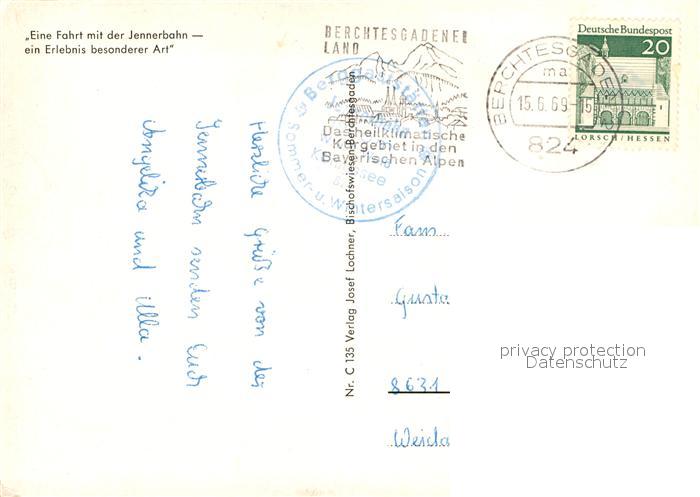 „Eine Fahrt mit der Jennerbahn —
ein Erlebnis besonderer Art“
Herzliche Grüße von der
Jennerbahn senden Euch
Angelika und Ulla.
Nr. C 135 Verlag Josef Lochner, Bischofswiesen-Berchtesgaden
BERCHTESGADENER
LAND
Das heilklimatische
Kurgebiet in den
Bayerischen Alpen
Berggaststätte
Sommer- u. Wintersaison
BERCHTESGADEN
15.6.69
824
Deutsche Bundespost
20
LORSCH/HESSEN
Fam
Gusta
8631
Weida
privacy protection
Datenschutz